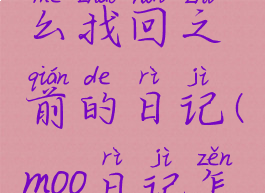 me zhǎo huí zhī
么找回之
qián de rì jì
前的日记(
rì jì zěn
moo日记怎